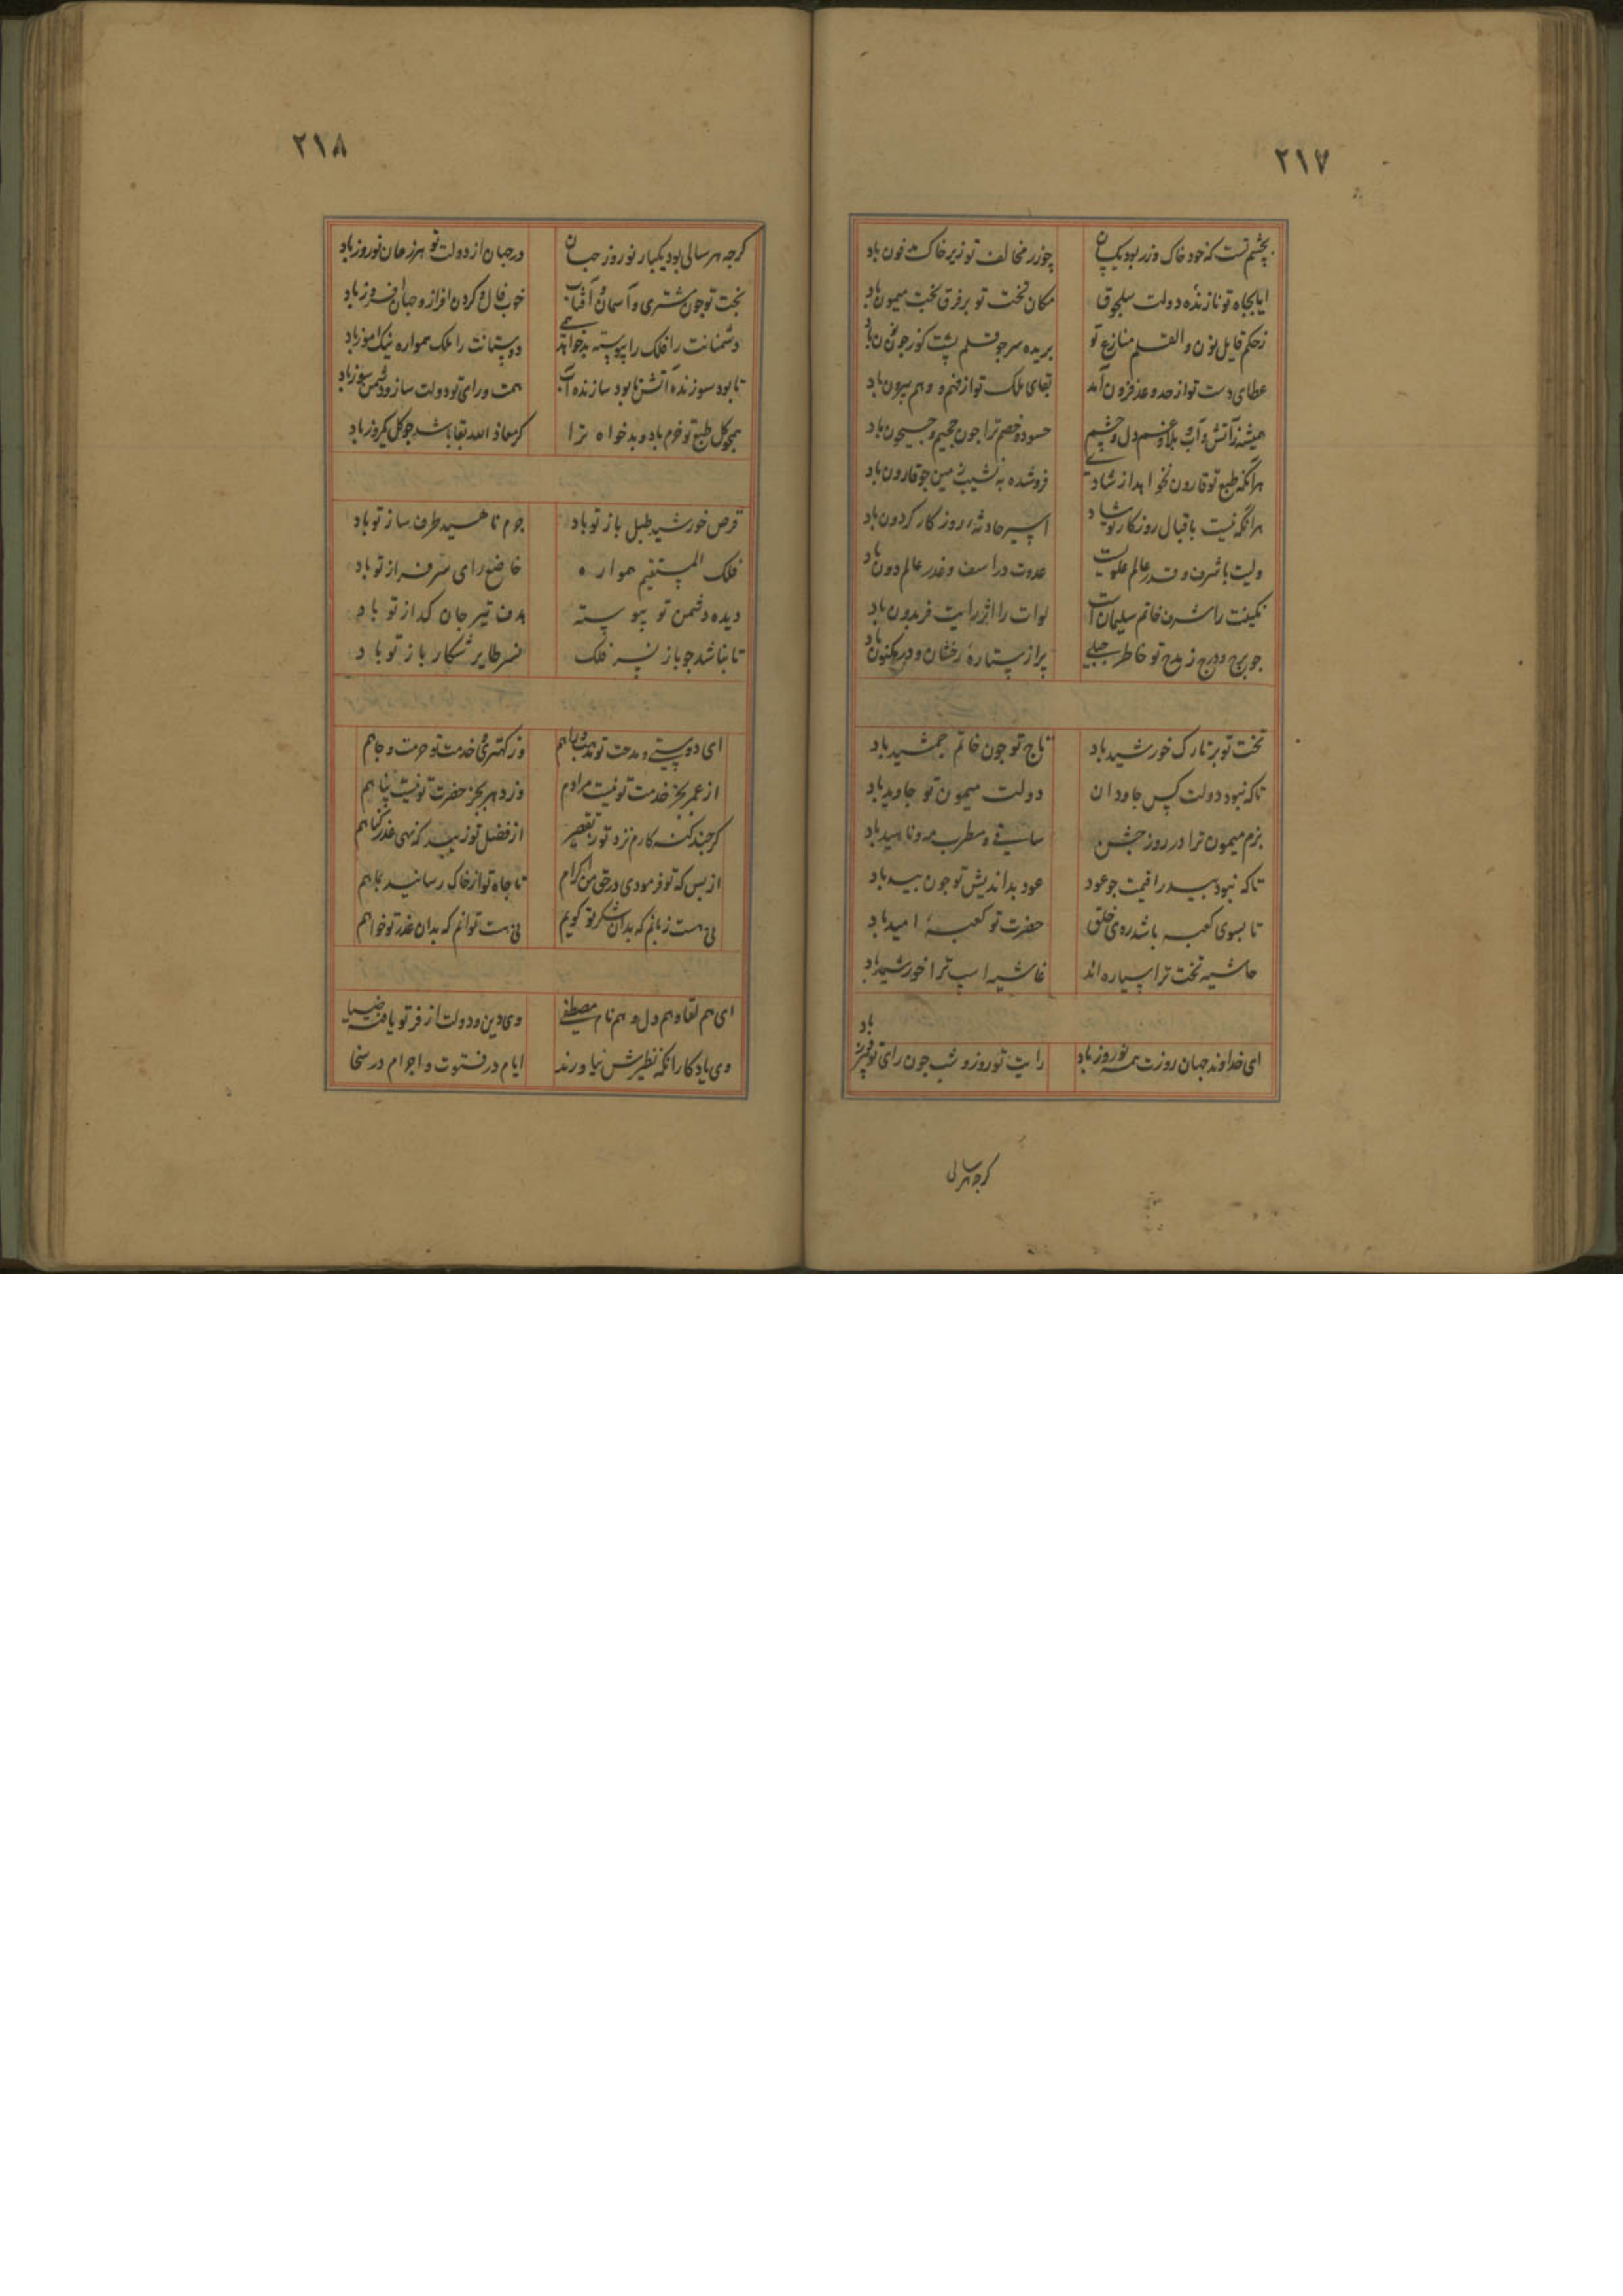 ۲۱۷
بچشم تست که خود خاک و زر بود یکسان چوزر مخالف تو زیر خاک مدفون باد
ایا بجاه تو نازنده دولت سلجوق مکان تخت تو برفرق بخت میمون باد
ز حکم قایل نون والقلم منازع تو بریده سر چو قلم پشت کوژ چون نون باد
عطای دست تو از حد و عد فزون آمد بقای ملک تو از فهم و وهم بیرون باد
همیشه ز آتش و آب بلا و غم دل و چشم حسود و خصم ترا جون جحیم و جیحون باد
هرانکه طبع تو قارون نخواهد از شادی فروشده به نشیب زمین جو قارون باد
هرانکه نیست باقبال روزکار تو شاد اسیر حادثهٔ روزکار کردون باد
ولیت با شرف و قدر عالم علویست عدوت در اسف و غدر عالم دون باد
نکینت را شرف خاتم سلیمان است لوات را اثر رایت فریدون باد
جو برج و درج ز مدح تو خاطر جبلی پر از ستارهٔ رخشان و در مکنون باد
تخت تو بر تارک خورشید باد تاج تو جون خاتم جمشید باد
تا که نبود دولت کس جاودان دولت میمون تو جاوید باد
بزم میمون ترا در روز جشن ساقی و مطرب مه و ناهید باد
تا که نبود بید را قیمت جو عود عود بداندیش تو جون بید باد
تا بسوی کعبه باشد ره‌ی خلق حضرت تو کعبهٔ امید باد
حاشیه تخت ترا سیاره اند غاشیه اسب ترا خورشید باد
ای خداوند جهان روزت همه نوروز باد رایت تو روز و شب جون رای تو فیروز باد
کرجه هر سالی
۲۱۸
کرجه هر سالی بود یکبار نوروز جهان در جهان از دولت تو هر زمان نوروز باد
بخت تو جون مشتری و آسمان و آفتاب خوب فال و کردن افراز و جهان افروز باد
دشمنانت را فلک پیوسته بدخواهد همی دوستانت را ملک همواره نیک اموز باد
تا بود سوزنده آتش تا بود سازنده آب همت و رای تو دولت ساز و دشمن سوز باد
همجو کل طبع تو خرم باد و بدخواه ترا کر معاذ الله بقا باشد جو کل یکروز باد
قرص خورشید طبل باز تو باد جرم ناهسید طرف ساز تو باد
فلک المستقیم همواره خاضع رای سرفراز تو باد
دیده دشمن تو پیوسته هدف تیر جان کداز تو باد
تا نباشد جو باز نسر فلک نسر طایر شکار باز تو باد
ای دوستی و مدحت تو وز کهتری و خدمت تو حرمت و جاهم
از عمر بجز خدمت تو نیست مرادم وز دهر بجز حضرت تو نیست پناهم
کرجند کنه کارم نزد تو ز تقصیر از فضل تو زیبد که نهی عذر کناهم
از بس که تو فرمودی در حق من اکرام تا جاه تو از خاک رسانید بماهم
نی هست زبانم که بدان شکر تو کویم نی هست توانم که بدان عذر تو خواهم
ای هم لقا و هم دل و هم نام مصطفی وی دین و دولت از فر تو یافته ضیا
وی یادکار آنکه نظیرش نیاورند ایام در فتوت و اجرام در سخا